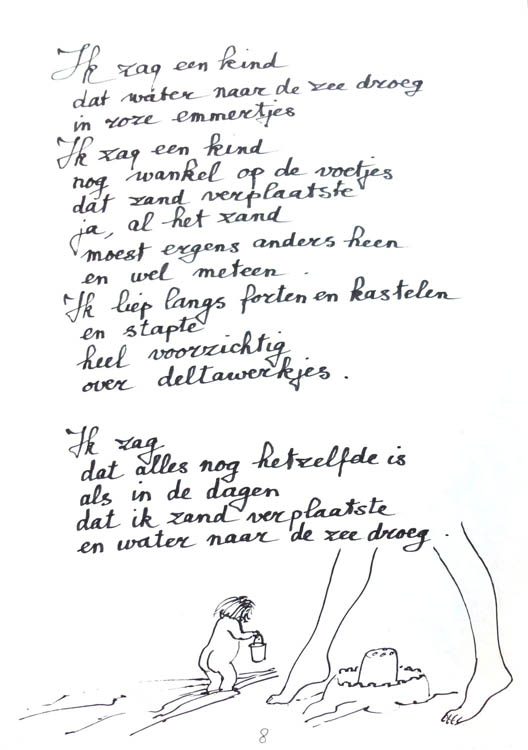 Ik zag een kind
dat water naar de zee droeg
in roze emmertjes
Ik zag een kind
nog wankel op de voetjes
dat zand verplaatste
ja, al het zand
moest ergens anders heen
en wel meteen.
Ik liep langs forten en kastelen
en stapte
heel voorzichtig
over deltawerkjes.
Ik zag
dat alles nog hetzelfde is
als in de dagen
dat ik zand verplaatste
en water naar de zee droeg.
8